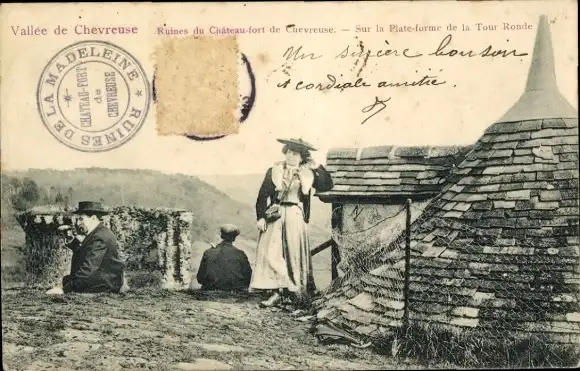 Vallée de Chevreuse
Ruines du Château-fort de Chevreuse. — Sur la Plate-forme de la Tour Ronde
RUINES DE LA MADELEINE
CHÂTEAU-FORT
de
CHEVREUSE
Un sincère bonsoir
et cordiale amitié.